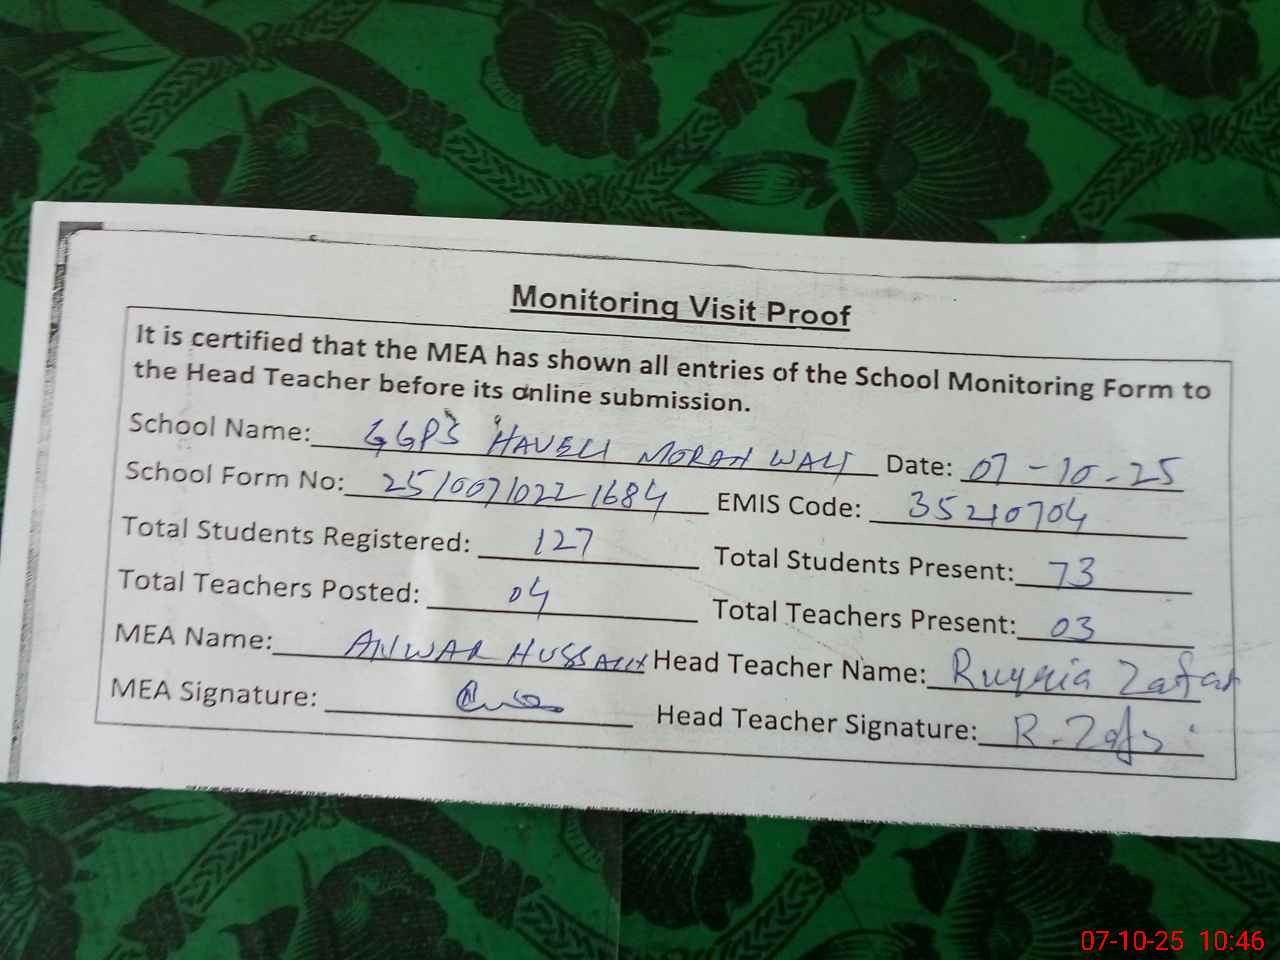 Monitoring Visit Proof
It is certified that the MEA has shown all entries of the School Monitoring Form to
the Head Teacher before its online submission.
School Name: GGPS HAVELI MORAN WALI Date: 07-10-25
School Form No: 25100710221684 EMIS Code: 35210704
Total Students Registered: 127 Total Students Present: 73
Total Teachers Posted: 04 Total Teachers Present: 03
MEA Name: ANWAR HUSSAIN Head Teacher Name: Zafar
MEA Signature: Head Teacher Signature: R. Zafar
07-10-25 10:46